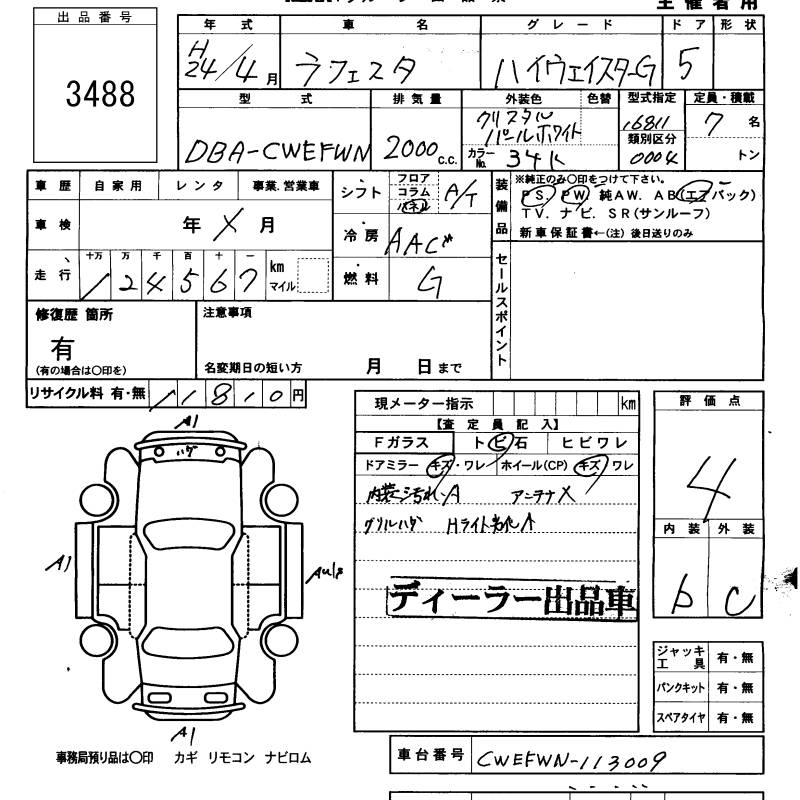 主催者用
出品番号
3488
年式 車名 グレード ドア 形状
H24/4月 ラフェスタ ハイウェイスターG 5
型式 排気量 外装色 色替 型式指定 定員・積載
DBA-CWEFWN 2000c.c. クリスタルパールホワイト 16811 7名
カラーNo. 34K 類別区分 0004 トン
車歴 自家用 レンタ 事業.営業車
シフト フロア コラム パネル A/T
装備品 ※純正のみ〇印をつけて下さい。
PS. PW. 純AW. AB(エアバック)
TV. ナビ. SR(サンルーフ)
新車保証書←(注)後日送りのみ
車検 年 X 月
冷房 AAC
走行 十万 万 千 百 十 一 km マイル
124567
燃料 G
セールスポイント
修復歴 箇所
有
(有の場合は〇印を)
注意事項
名変期日の短い方 月 日まで
リサイクル料 有・無 11810円
現メーター指示 km
評価点
4
【査定員記入】
Fガラス トビ石 ヒビワレ
ドアミラー キズ・ワレ ホイール(CP) キズ ワレ
内装ニ汚れ.A アンテナX
グリルハゲ Hライト劣化A
内装 外装
b C
ディーラー出品車
A1
ハゲ
A1
A1
ジャッキ工具 有・無
パンクキット 有・無
スペアタイヤ 有・無
事務局預り品は〇印 カギ リモコン ナビロム
車台番号 CWEFWN-113009